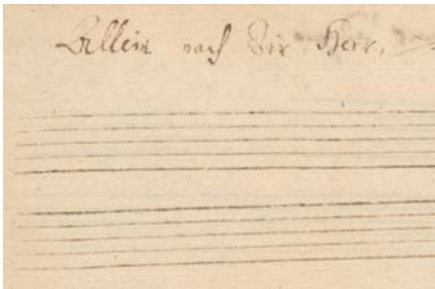 Allein nach Dir Herr.